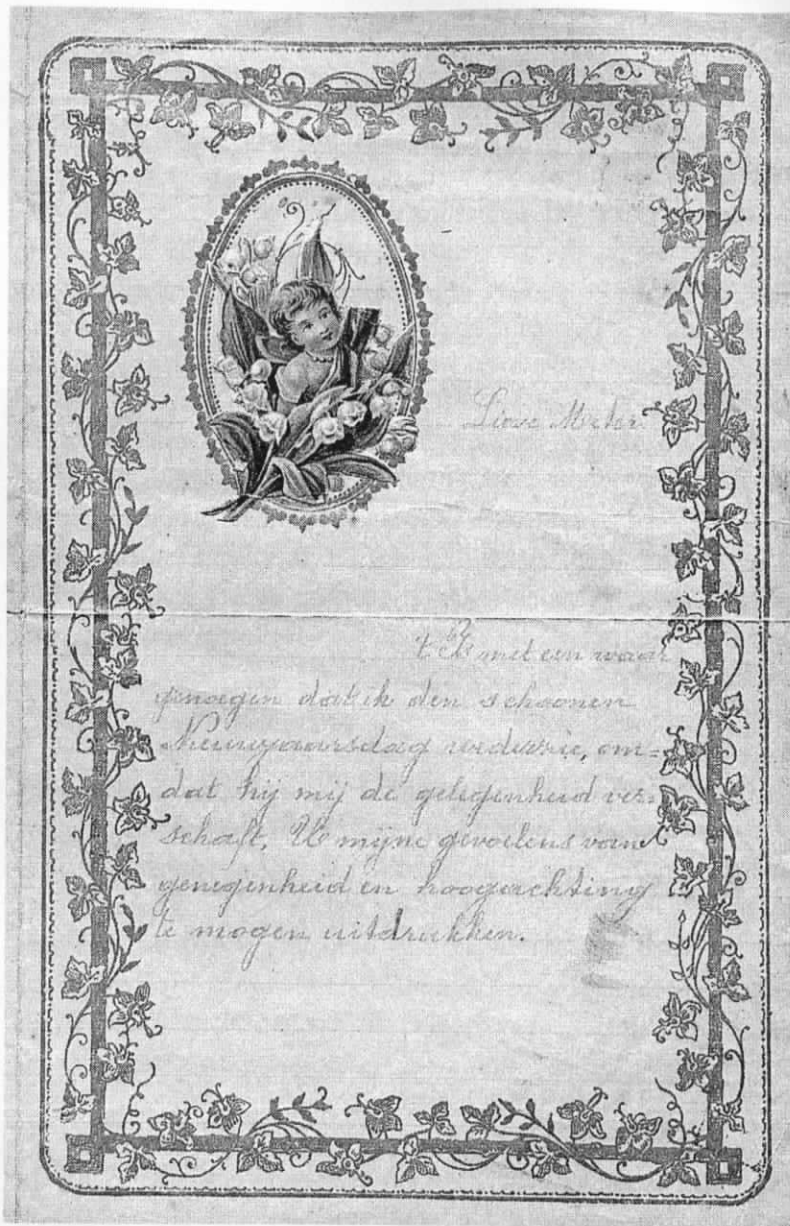 Lieve Meter
't is met een waar
genoegen dat ik den schoonen
Nieuwjaarsdag wederzie, om=
dat hij mij de gelegenheid ver=
schaft, U mijne gevoelens van
genegenheid en hoogachting
te mogen uitdrukken.